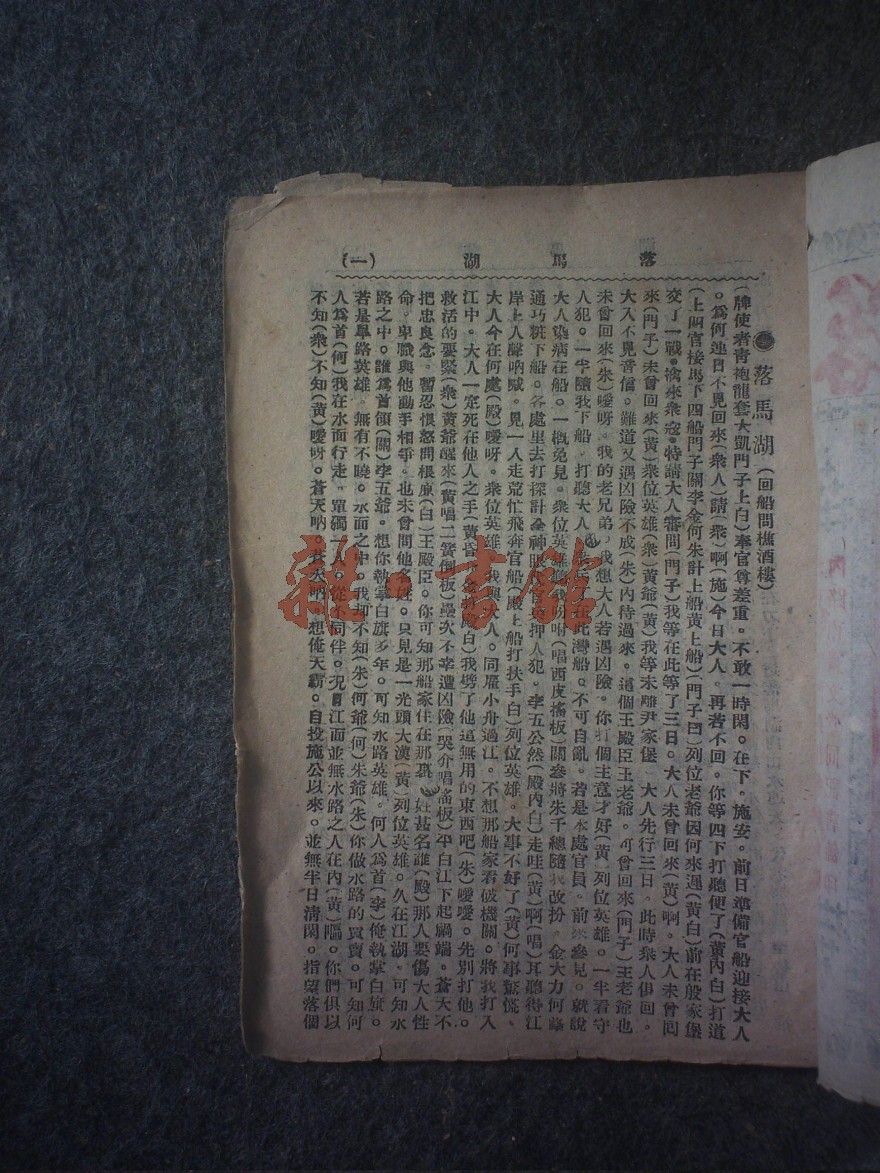 落馬湖 (一)
落馬湖(回船問樵酒樓)
(牌使者青袍龍套大凱門子上白)奉官尊差重。不敢一時閑。在下。施安。前日準備官船迎接大人
。爲何連日不見回來(衆人)請(衆)啊(施)今日大人。再若不回。你等四下打聽便了(黃內白)打道
(上四官接馬下四船門子關李金何朱計上船黃上船)(門子白)列位老爺因何來遲(黃白)前在殷家堡
交了一戰。擒來衆寇。特請大人審問(門子)我等在此等了三日。大人未曾回來(黃)啊。大人未曾回
來(門子)未曾回來(黃)衆位英雄(衆)黃爺(黃)我等未離尹家堡 大人先行三日。此時衆人俱回。
大人不見音信。難道又遇凶險不成(朱)內待過來。這個王殿臣王老爺。可曾回來(門子)王老爺也
未曾回來(朱)噯呀。我的老兄弟。我想大人若遇凶險。你打個主意才好(黃)列位英雄。一半看守
人犯。一半隨我下船。打聽大人 在此灣船。不可自亂。若是本處官員。前來參見。就說
大人染病在船。一概免見。衆位英雄聽我吩咐(唱西皮搖板)關參將朱千總隨我改扮。金大力何
通巧粧下船。各處里去打探計全神眼 押人犯。李五公然(殿內白)走哇(黃)啊(唱)耳聽得江
岸上人聲吶喊。見一人走荒忙飛奔官船(殿上船打扶手白)列位英雄。大事不好了(黃)何事驚慌。
大人今在何處(殿)噯呀。衆位英雄 我與大人。同雇小舟過江。不想那船家看破機關。將我打入
江中。大人一定死在他人之手(黃昏 殿白)我劈了他這無用的東西吧(朱)噯噯。先別打他。
救活的要緊(衆)黃爺醒來(黃唱二簧倒板)屢次不幸遭凶險(哭介唱搖板)平白江下起禍端。蒼天不
把忠良念。暫忍恨怒問根原(白)王殿臣。你可知那船家住在那裏。姓甚名誰(殿)那人要傷大人性
命。卑職與他動手相爭。也未曾問他名姓。只見是一光頭大漢(黃)列位英雄。久在江湖。可知水
路之中。誰爲首領(關)李五爺。想你執掌白旗多年。可知水路英雄。何人爲首(李)俺執掌白旗。
若是旱路英雄。無有不曉。水面之中。我却不知(朱)何爺(何)朱爺(朱)你做水路的買賣。可知何
人爲首(何)我在水面行走。單獨一人。從不同伴。況且江面並無水路之人在內(黃)嘔。你們俱以
不知(衆)不知(黃)噯呀。蒼天吶。我天吶。想俺天霸。自投施公以來。並無半日清閑。指望落個
雜·書館